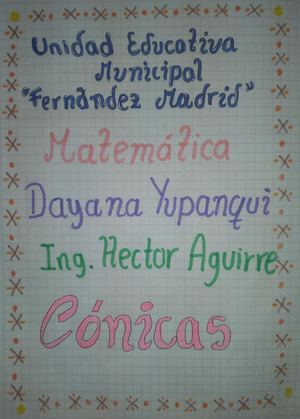 Unidad Educativa
Municipal
"Fernández Madrid"
Matemática
Dayana Yupanqui
Ing. Hector Aguirre
Cónicas